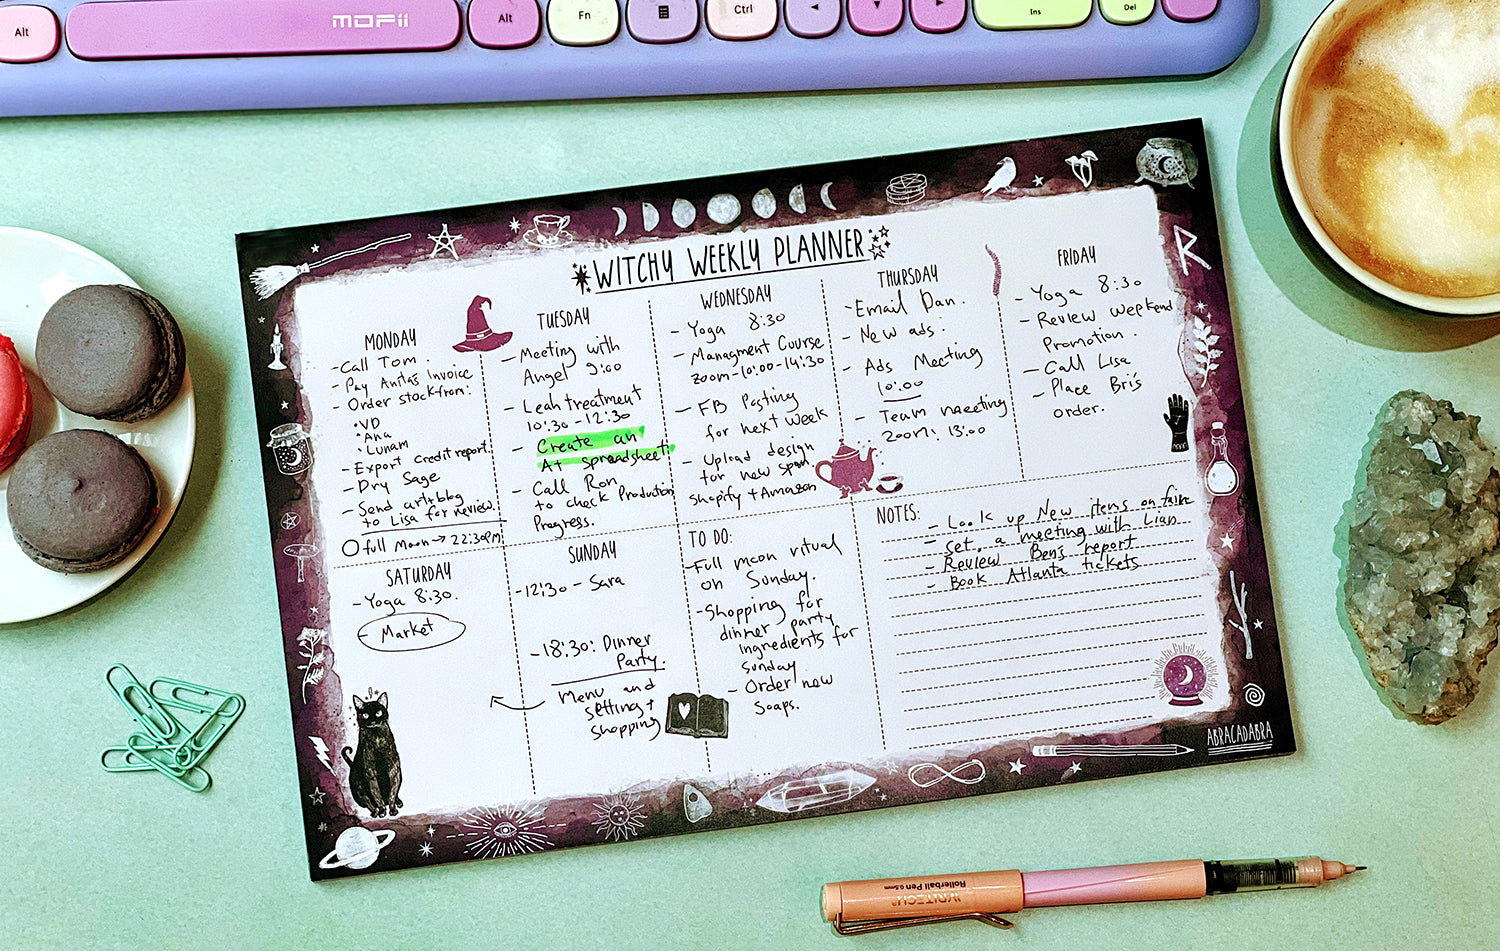 Alt
MOFii
Alt
Fn
Ctrl
Ins
Del
WITCHY WEEKLY PLANNER
MONDAY
- Call Tom.
- Pay Anita's Invoice
- Order stock from:
• VD
• Ana
• Lunam
- Export Credit report.
- Dry Sage
- Send art+blog
to Lisa for review.
full Moon → 22:30pm
TUESDAY
- Meeting with
Angel 9:00
- Leah treatment
10:30 - 12:30
- Create an
A+ spreadsheet.
- Call Ron
to check Production
Progress.
WEDNESDAY
- Yoga 8:30
- Managment Course
zoom - 10:00 - 14:30
- FB Posting
for next week
- Upload design
for new
Shopify + Amazon
THURSDAY
- Email Dan.
- New ads.
- Ads Meeting
10:00
- Team meeting
zoom: 13:00
FRIDAY
- Yoga 8:30
- Review weekend
Promotion.
- Call Lisa
- Place Bri's
order.
SATURDAY
- Yoga 8:30.
- Market
SUNDAY
- 12:30 - Sara
- 18:30: Dinner
Party.
Menu and
setting +
shopping
TO DO:
- Full moon ritual
on Sunday.
- Shopping for
dinner party
Ingredients for
sunday
- Order new
soaps.
NOTES:
- Look up New items on faire
- set a meeting with Lian
- Review Ben's report
- Book Atlanta tickets
ABRACADABRA
WRITECH
Rollerball Pen 0.5mm